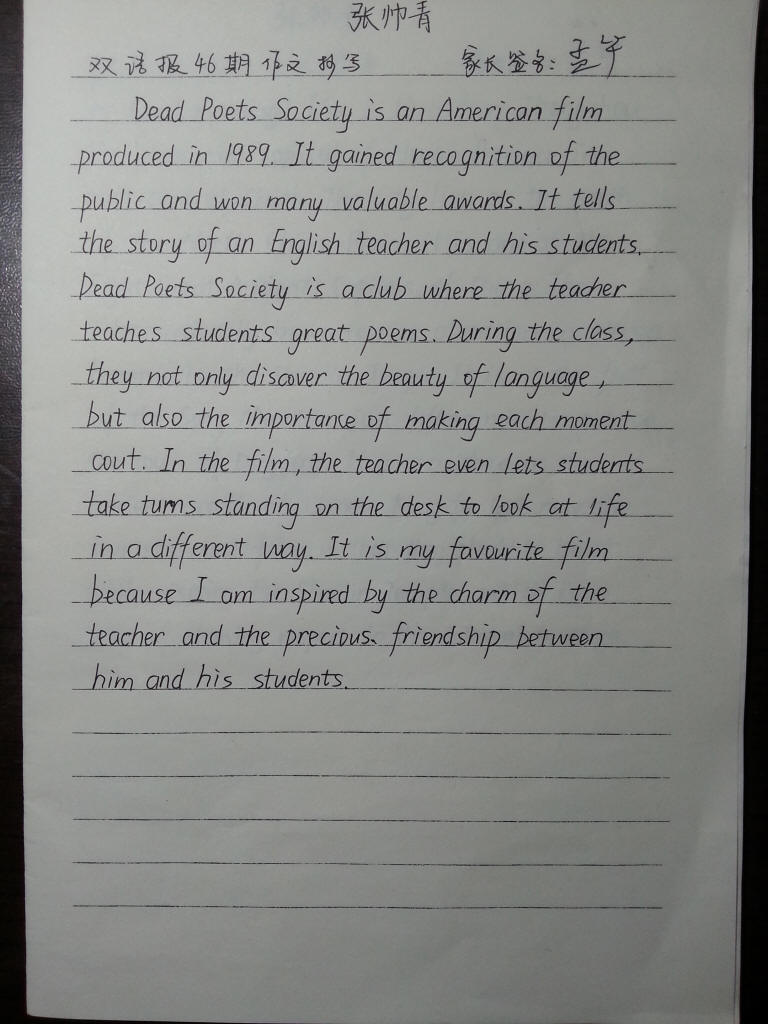 张帅青
双语报46期作文抄写 家长签名:孟午
Dead Poets Society is an American film
produced in 1989. It gained recognition of the
public and won many valuable awards. It tells
the story of an English teacher and his students.
Dead Poets Society is a club where the teacher
teaches students great poems. During the class,
they not only discover the beauty of language,
but also the importance of making each moment
cout. In the film, the teacher even lets students
take turns standing on the desk to look at life
in a different way. It is my favourite film
because I am inspired by the charm of the
teacher and the precious friendship between
him and his students.